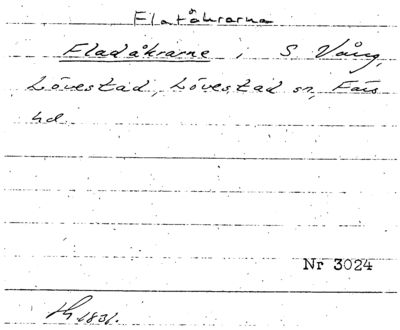 Flatåkrarna
Fladåkrarne i S Vång,
Lövestad, Lövestad sn, Färs
hd.
Nr 3024
1831.